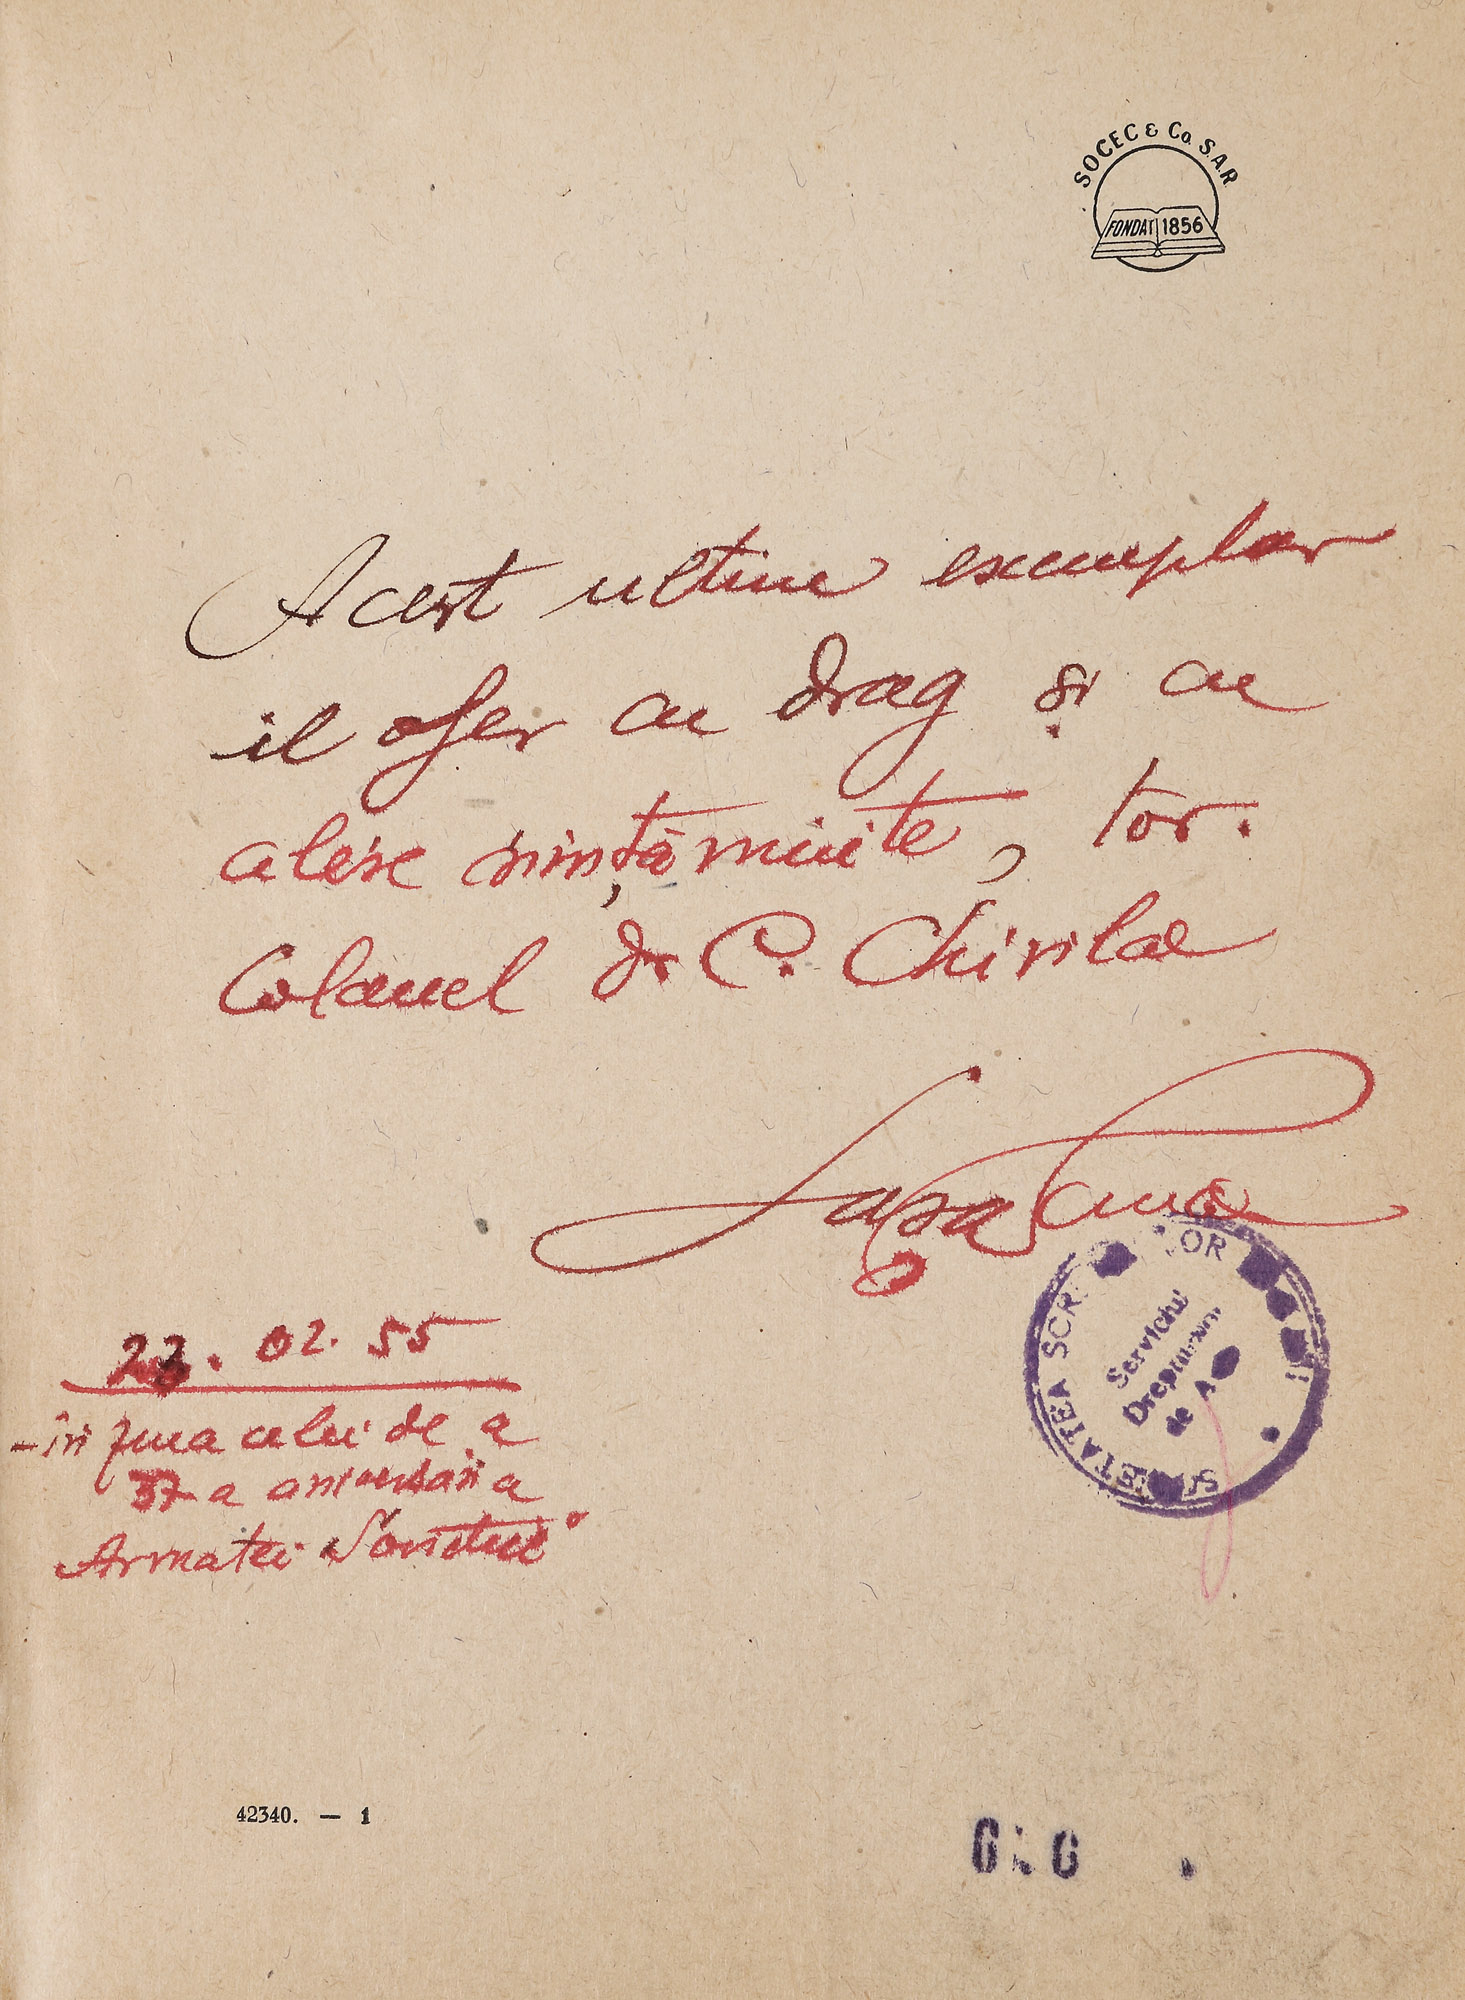 SOCEC & Co. S.A.R
FONDAT 1856
Acest ultim exemplar
il ofer cu drag și cu
alese simțăminte, tov.
Colonel dr C. Chirilă
Sașa Pană
23. 02. 55
- în ziua celei de a
37 a aniversări a
Armatei Sovietice
SOCIETATEA SCR OR
Serviciul
Drepturilor
de A
42340. — 1